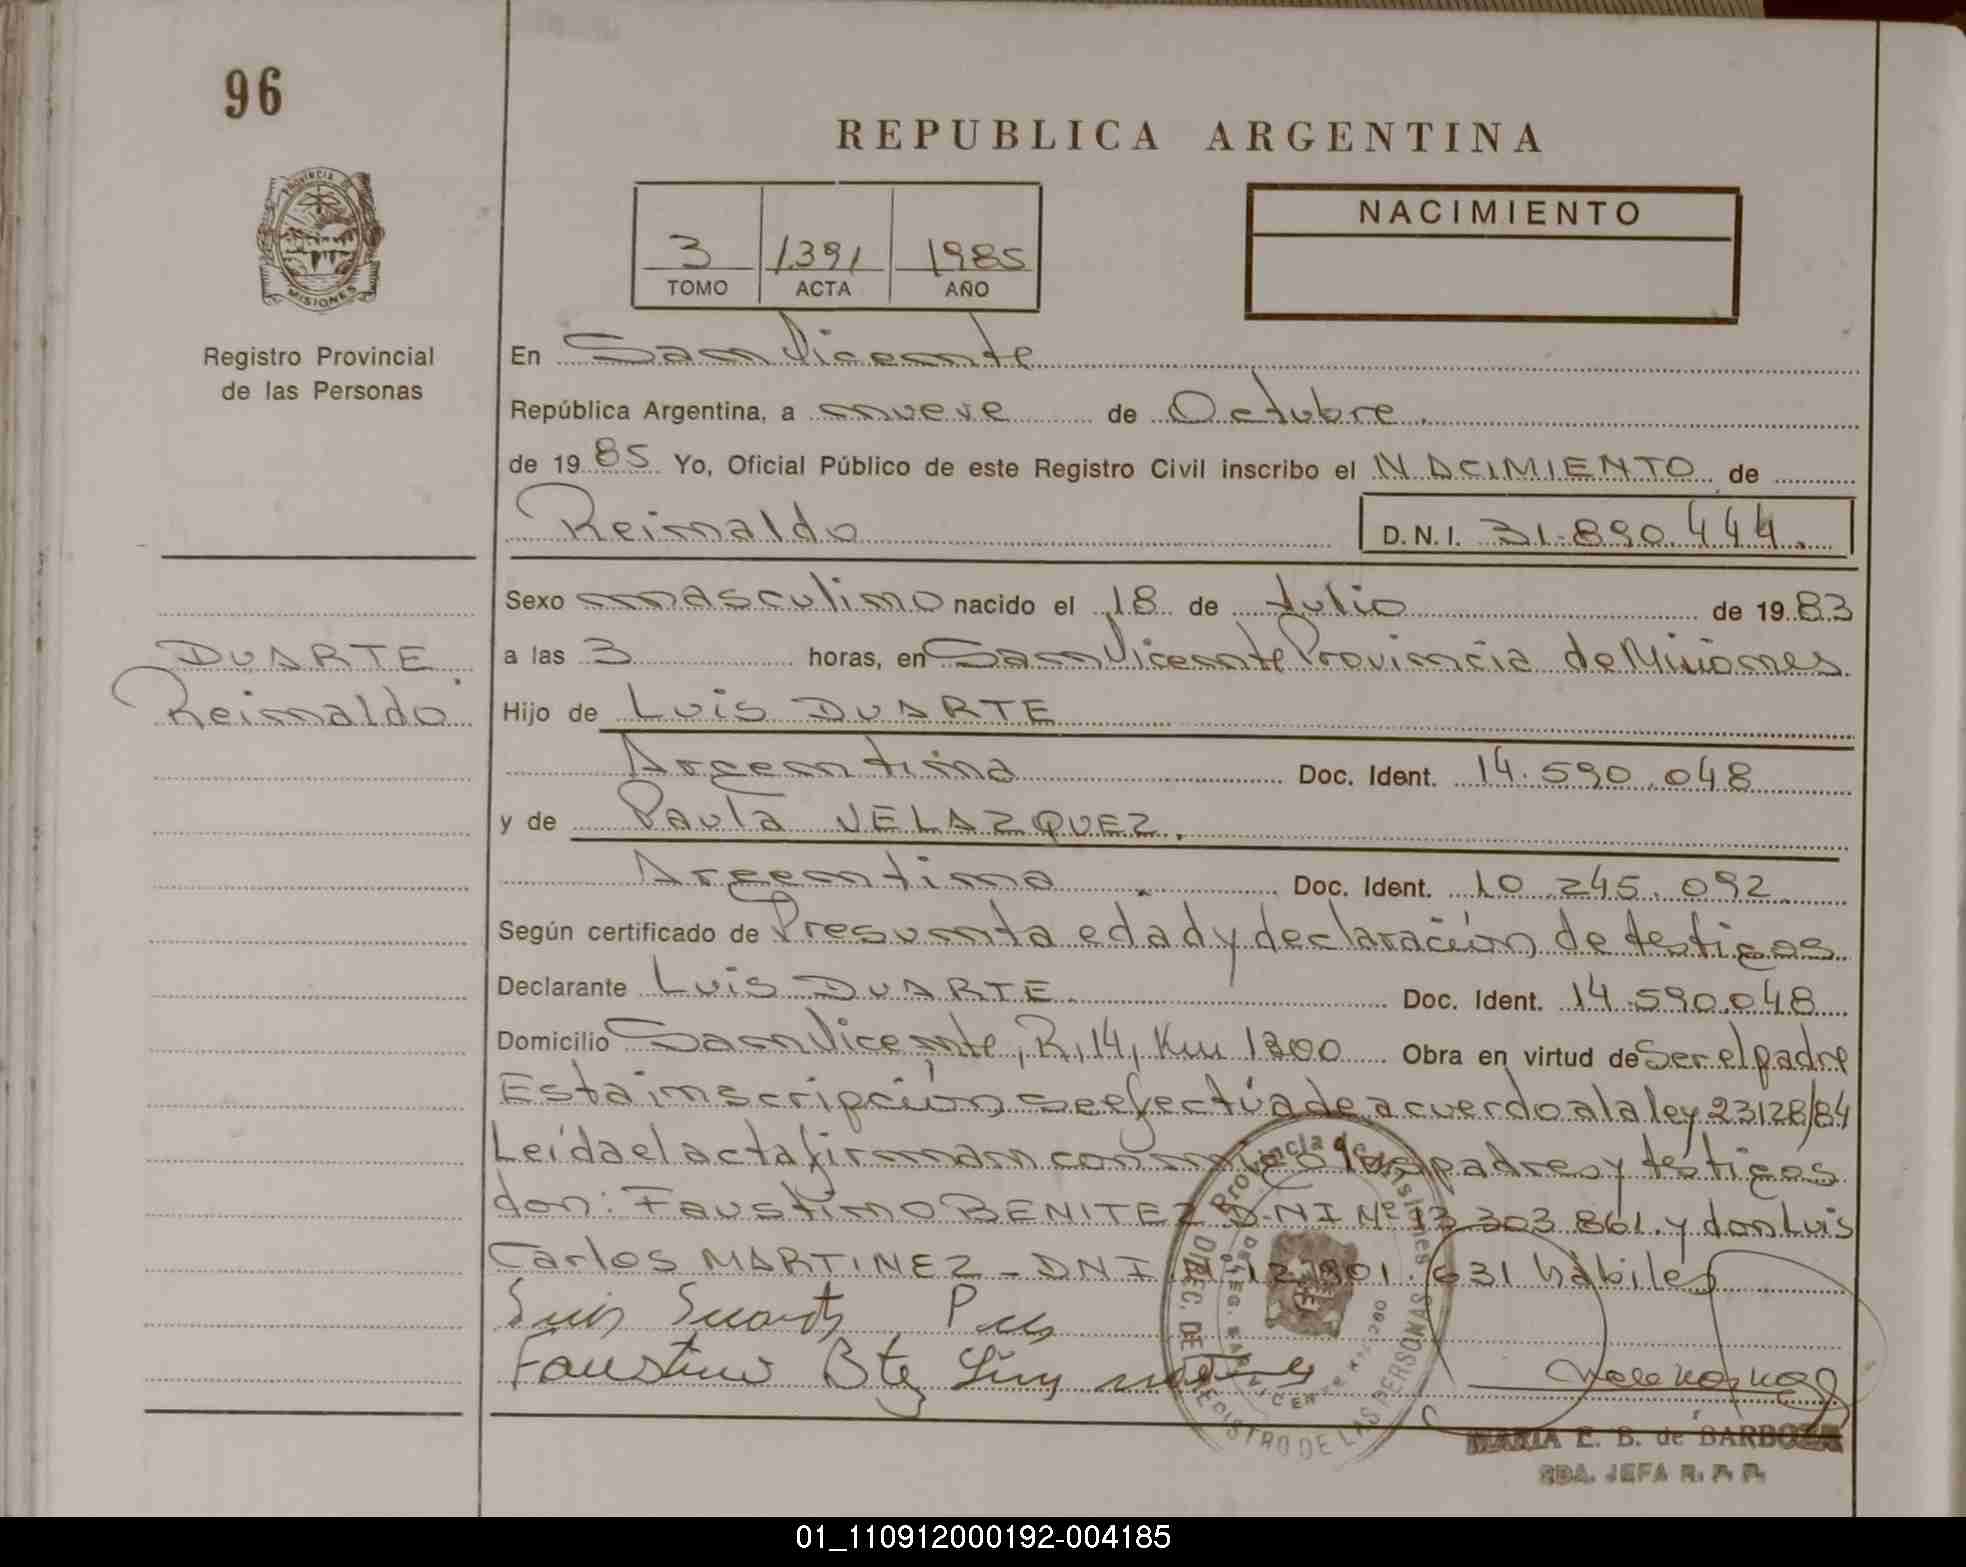 96
REPUBLICA ARGENTINA
PROVINCIA DE
MISIONES
3 1391 1985
TOMO ACTA AÑO
NACIMIENTO
Registro Provincial
de las Personas
En San Vicente
República Argentina, a nueve de Octubre.
de 19 85 Yo, Oficial Público de este Registro Civil inscribo el NACIMIENTO de
Reinaldo D.N.I. 31.890.444.
Sexo masculino nacido el 18 de Julio de 19 83
DUARTE
Reinaldo
a las 3 horas, en San Vicente Provincia de Misiones.
Hijo de Luis DUARTE
Argentina Doc. Ident. 14.590.048
y de Paula VELAZQUEZ.
Argentina Doc. Ident. 10.245.092
Según certificado de Presunta edad y declaración de testigos
Declarante Luis DUARTE Doc. Ident. 14.590.048
Domicilio San Vicente, R, 14, Km 1300 Obra en virtud de Ser el padre
Esta inscripción se efectúa de acuerdo a la ley 23128/84
Leída el acta firman conmigo los padres y testigos
don: Faustino BENITEZ DNI Nº 13 303 861. y don Luis
Carlos MARTINEZ - DNI Nº 12.901.631 hábiles
Luis Duarte
Faustino Btez
Provincia de Misiones
DIREC. DE REGISTRO DE LAS PERSONAS
MARIA E. B. de BARBOZA
2DA. JEFA R. P. P.
01_110912000192-004185